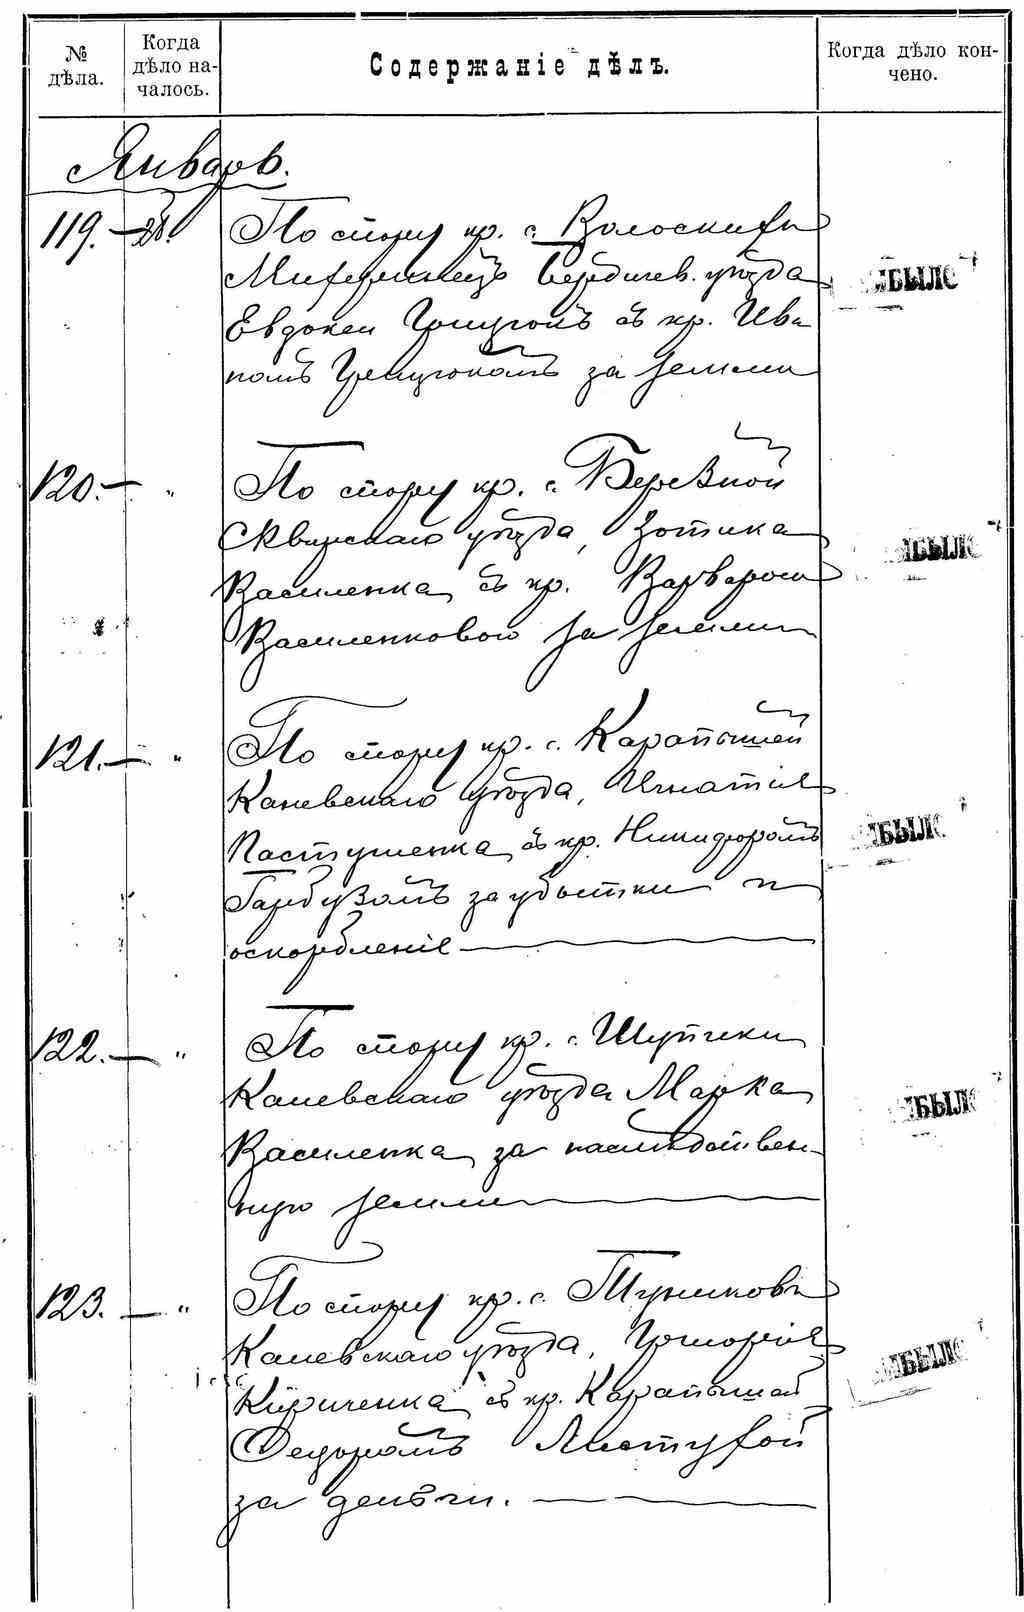 № дѣла.
Когда дѣло на-чалось.
Содержаніе дѣлъ.
Когда дѣло кон-чено.
Январь.
119. — 28. По спору кр. с. Волоскихъ
Бердичев. уѣзда
Евдокеи съ кр. Ива
номъ за землю
ВЫБЫЛО
120. — " По спору кр. с. Березной
Сквирскаго уѣзда, Зотика
Василенка съ кр. Варварою
Василенковою за землю
ВЫБЫЛО
121. — " По спору кр. с. Карапышей
Каневскаго уѣзда, Игнатія
Пастушенка съ кр. Никифоромъ
Гарбузомъ за убытки и
оскорбленіе
ВЫБЫЛО
122. — " По спору кр. с. Шупики
Каневскаго уѣзда Марка
Василенка за наслѣдствен-
ную землю
ВЫБЫЛО
123. — " По спору кр. с. Тулиновъ
Каневскаго уѣзда, Григорія
Кириченка съ кр. Карапышей
Федоромъ Листухой
за деньги.
ВЫБЫЛО